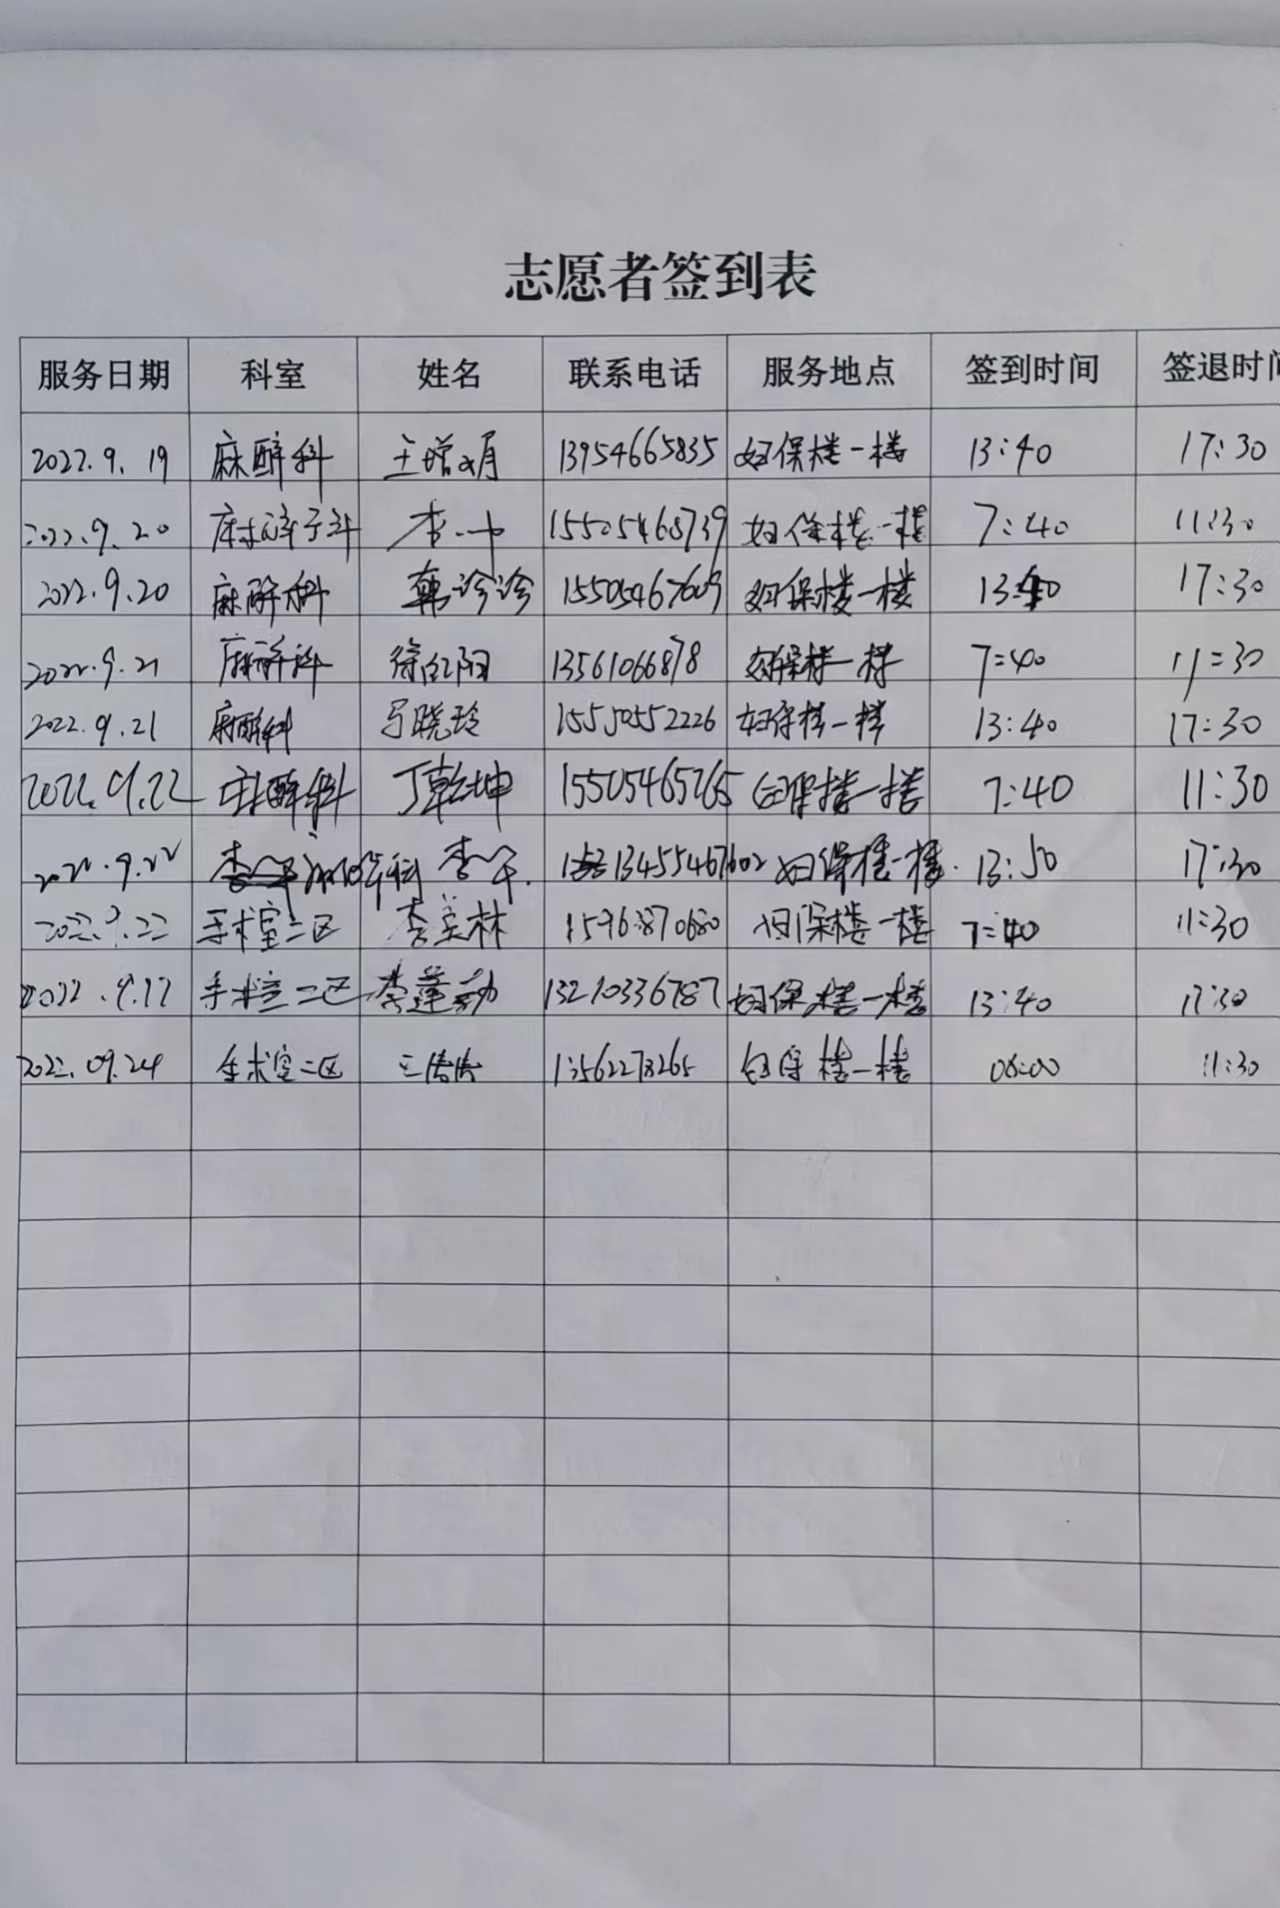 志愿者签到表
服务日期 科室 姓名 联系电话 服务地点 签到时间 签退时间
2022.9.19 麻醉科 王增月 13954665835 妇保楼一楼 13:40 17:30
2022.9.20 麻醉科 李一中 15505468739 妇保楼一楼 7:40 11:30
2022.9.20 麻醉科 韩诊诊 15505467609 妇保楼一楼 13:40 17:30
2022.9.21 麻醉科 徐红阳 13561066878 妇保楼一楼 7:40 11:30
2022.9.21 麻醉科 马晓玲 15550552226 妇保楼一楼 13:40 17:30
2022.9.22 麻醉科 丁乾坤 15505465765 妇保楼一楼 7:40 11:30
2022.9.22 麻醉科 李 13455467602 妇保楼一楼 13:50 17:30
2022.9.22 手术室二区 李美林 15963870680 妇保楼一楼 7:40 11:30
2022.9.22 手术室二区 李莲勤 13210336787 妇保楼一楼 13:40 17:30
2022.09.24 手术室二区 王倩倩 13562278265 妇保楼一楼 08:00 11:30